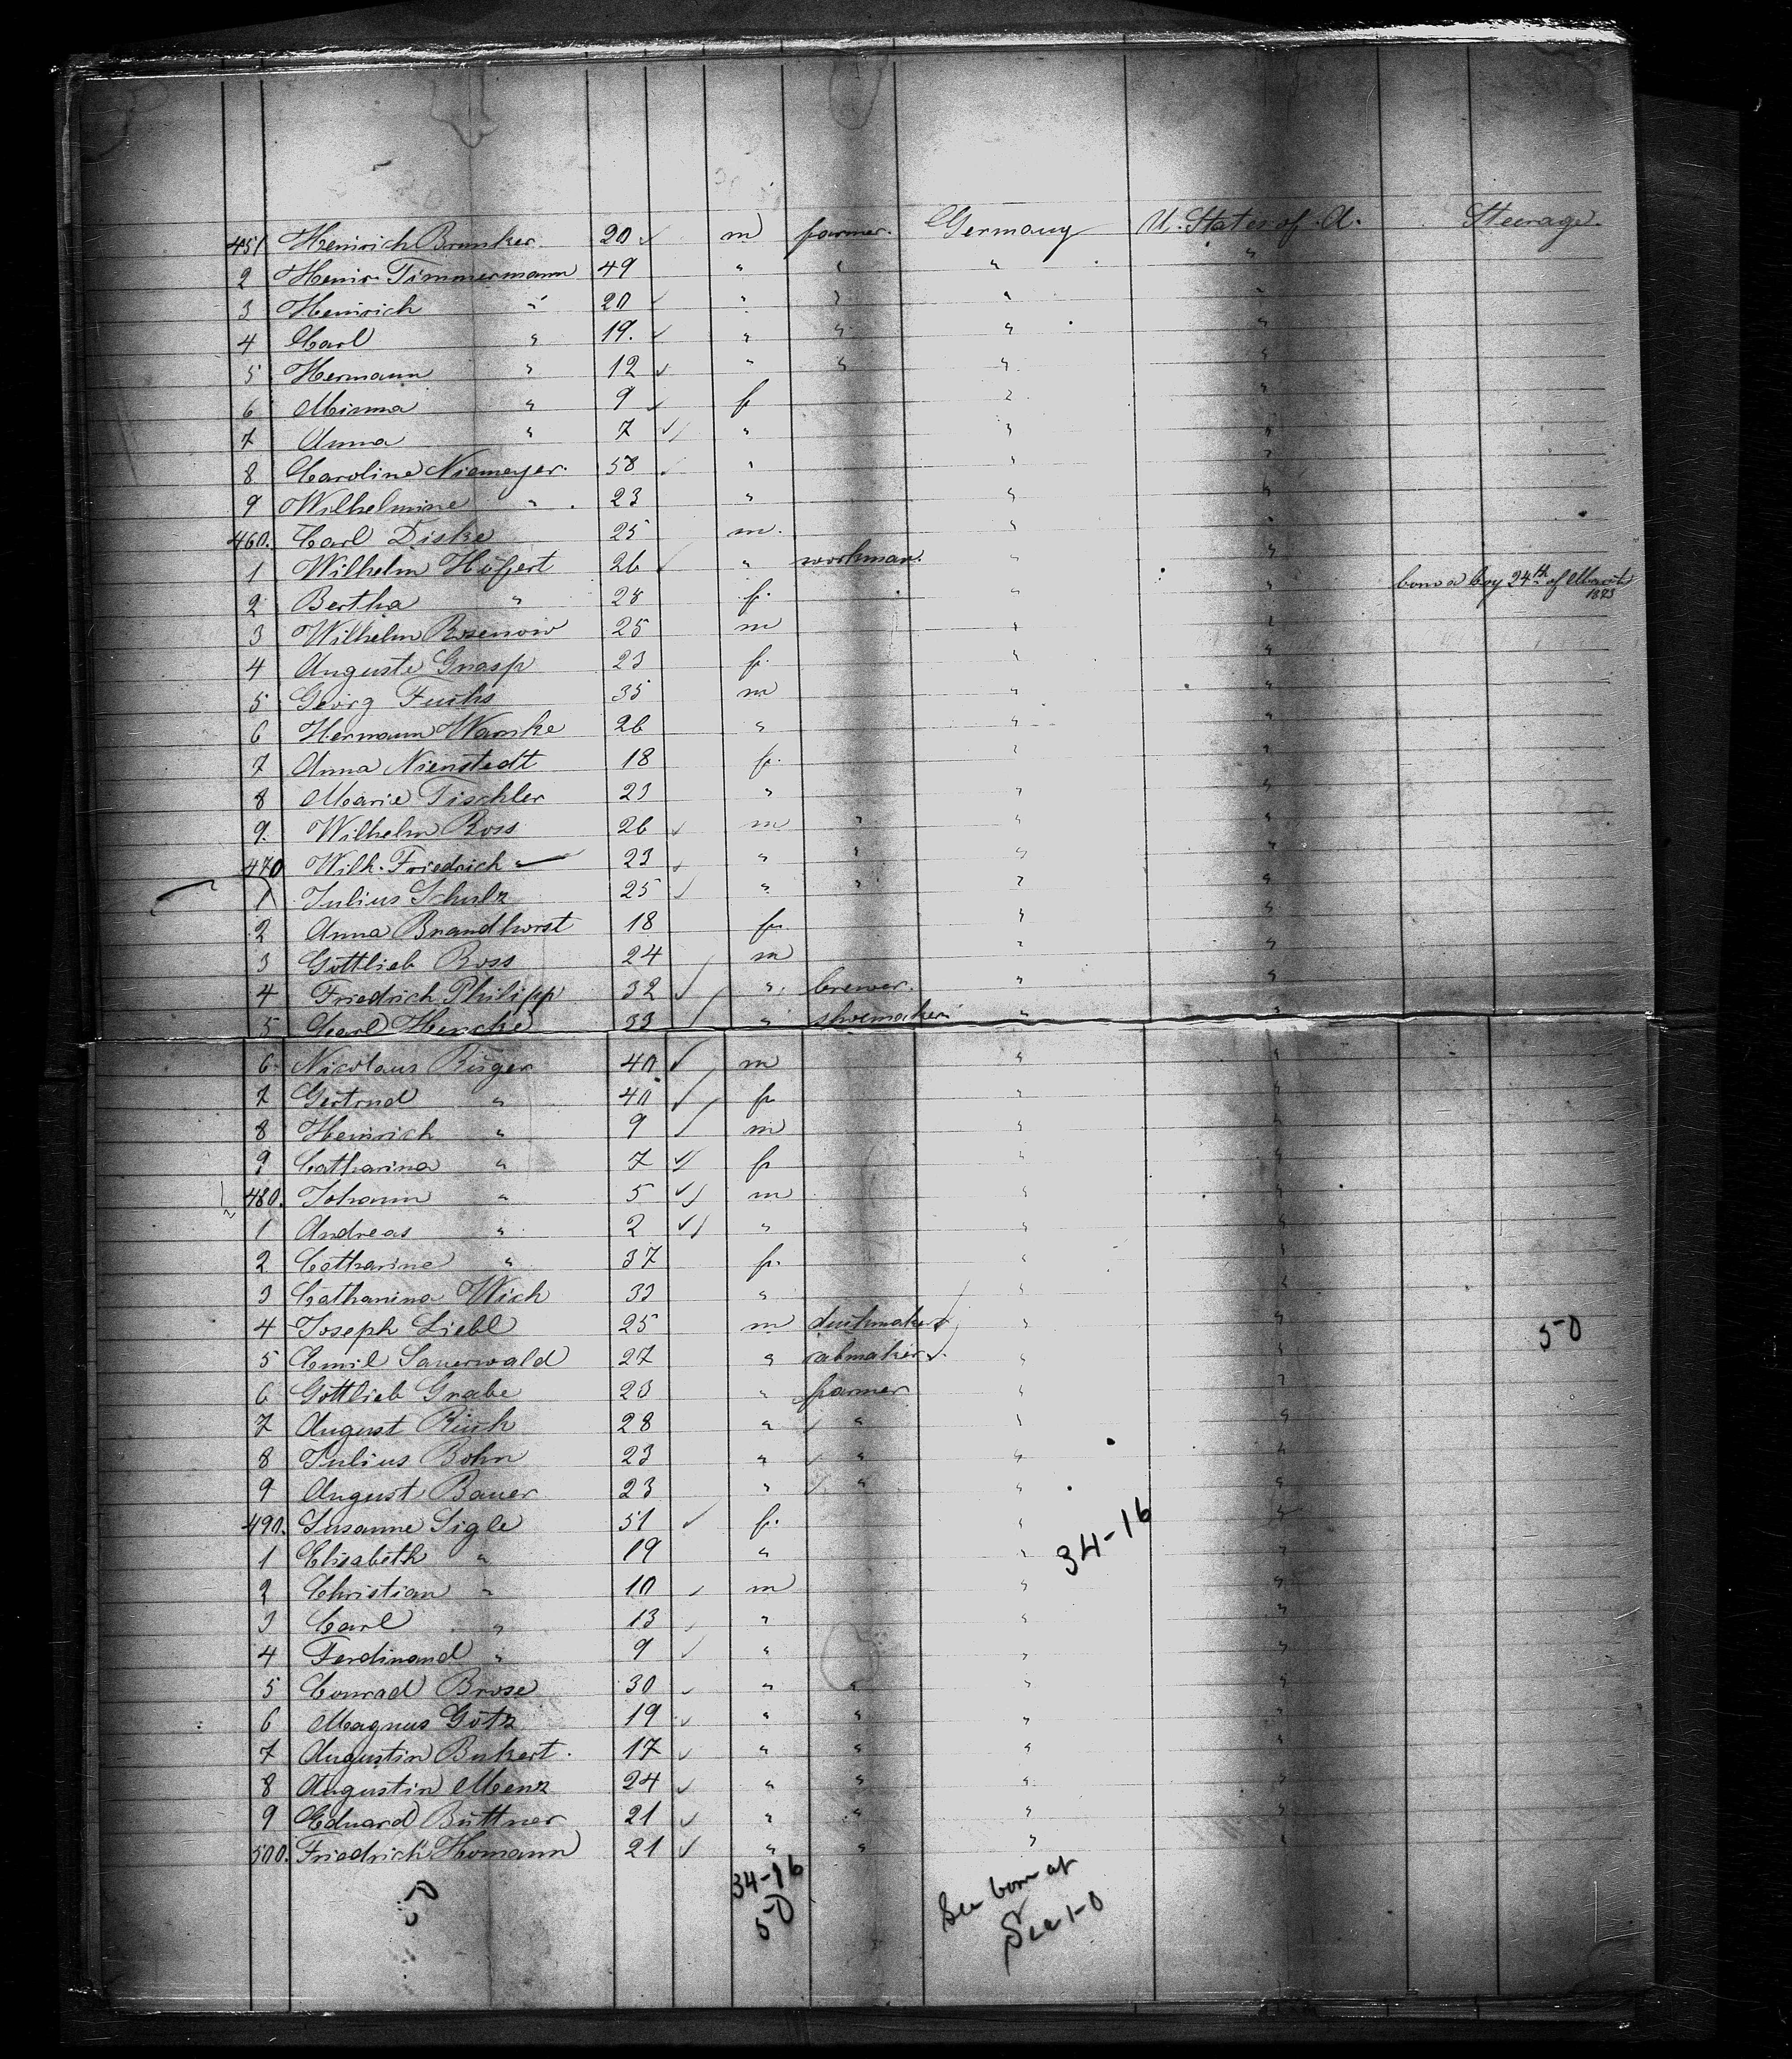 451 Heinrich Brunker 20 m farmer. Germany U. States of A. Steerage.
2 Heinr. Timmermann 49 " " " "
3 Heinrich " 20 " " " "
4 Carl " 19. " " " "
5 Hermann " 12 " " " "
6 Minna " 9 f " "
7 Anna " 7 " " "
8 Caroline Niemeyer. 58 " " "
9 Wilhelmine " 23 " " "
460. Carl Diske 25 m. " "
1 Wilhelm Hüfert 26 " workman. " "
2 Bertha " 28 f. " " born a boy 24th of March 1873
3 Wilhelm Rosenow 25 m " "
4 Auguste Gnasp 23 f. " "
5 Georg Fuchs 35 m " "
6 Hermann Wanke 26 " " "
7 Anna Nienstedt 18 f. " "
8 Marie Tischler 23 " " "
9. Wilhelm Ross 26 m " " "
470 Wilh. Friedrich 23 " " " "
1 Julius Schulz 25 " " " "
2 Anna Brandhorst 18 f. " "
3 Gottlieb Ross 24 m " "
4 Friedrich Philipp 32 " brewer. " "
5 Carl Hencke 33 " shoemaker " "
6 Nicolaus Rüger 40 m " "
7 Gertrud " 40 f " "
8 Heinrich " 9 m " "
9 Catharina " 7 f " "
480. Johann " 5 m " "
1 Andreas " 2 " " "
2 Catharine " 37 f. " "
3 Catharina Wich 33 " " "
4 Joseph Liebl 25 m " "
5 Emil Sauerwald 27 " " "
50
6 Gottlieb Grabe 23 " farmer " "
7 August Rüch 28 " " " "
8 Julius Bohn 23 " " " "
9 August Bauer 23 " " " "
490. Susanne Sigle 51 f. " "
34-16
1 Elisabeth " 19 " " "
2 Christian " 10 m " "
3 Carl " 13 " " "
4 Ferdinand " 9 " " "
5 Conrad Brose 30 " " " "
6 Magnus Götz 19 " " " "
7 Augustin Bukert. 17 " " " "
8 Augustin Menz 24 " " " "
9 Eduard Büttner 21 " " " "
500. Friedrich Homann 21 " " " "
50 34-16
50
See born at
Sea 1-0